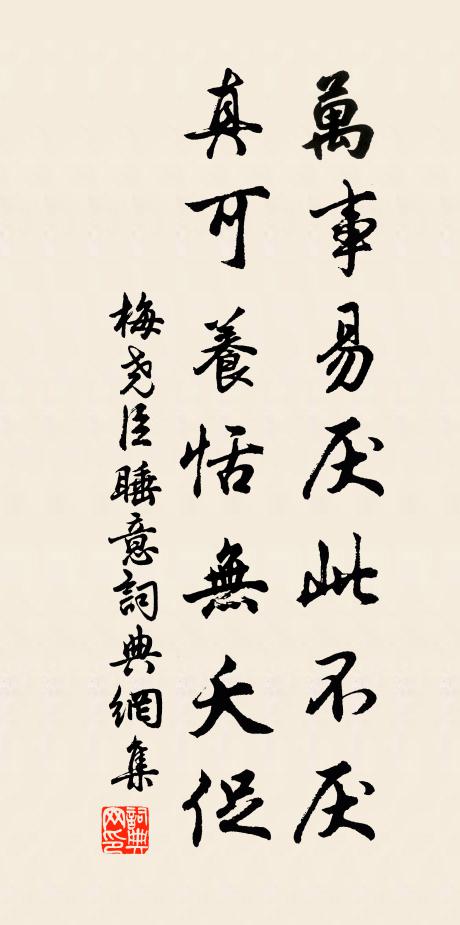 萬事易厌此不厌
真可養恬無夭促
梅尧臣睡意詞典網集
詞典網印